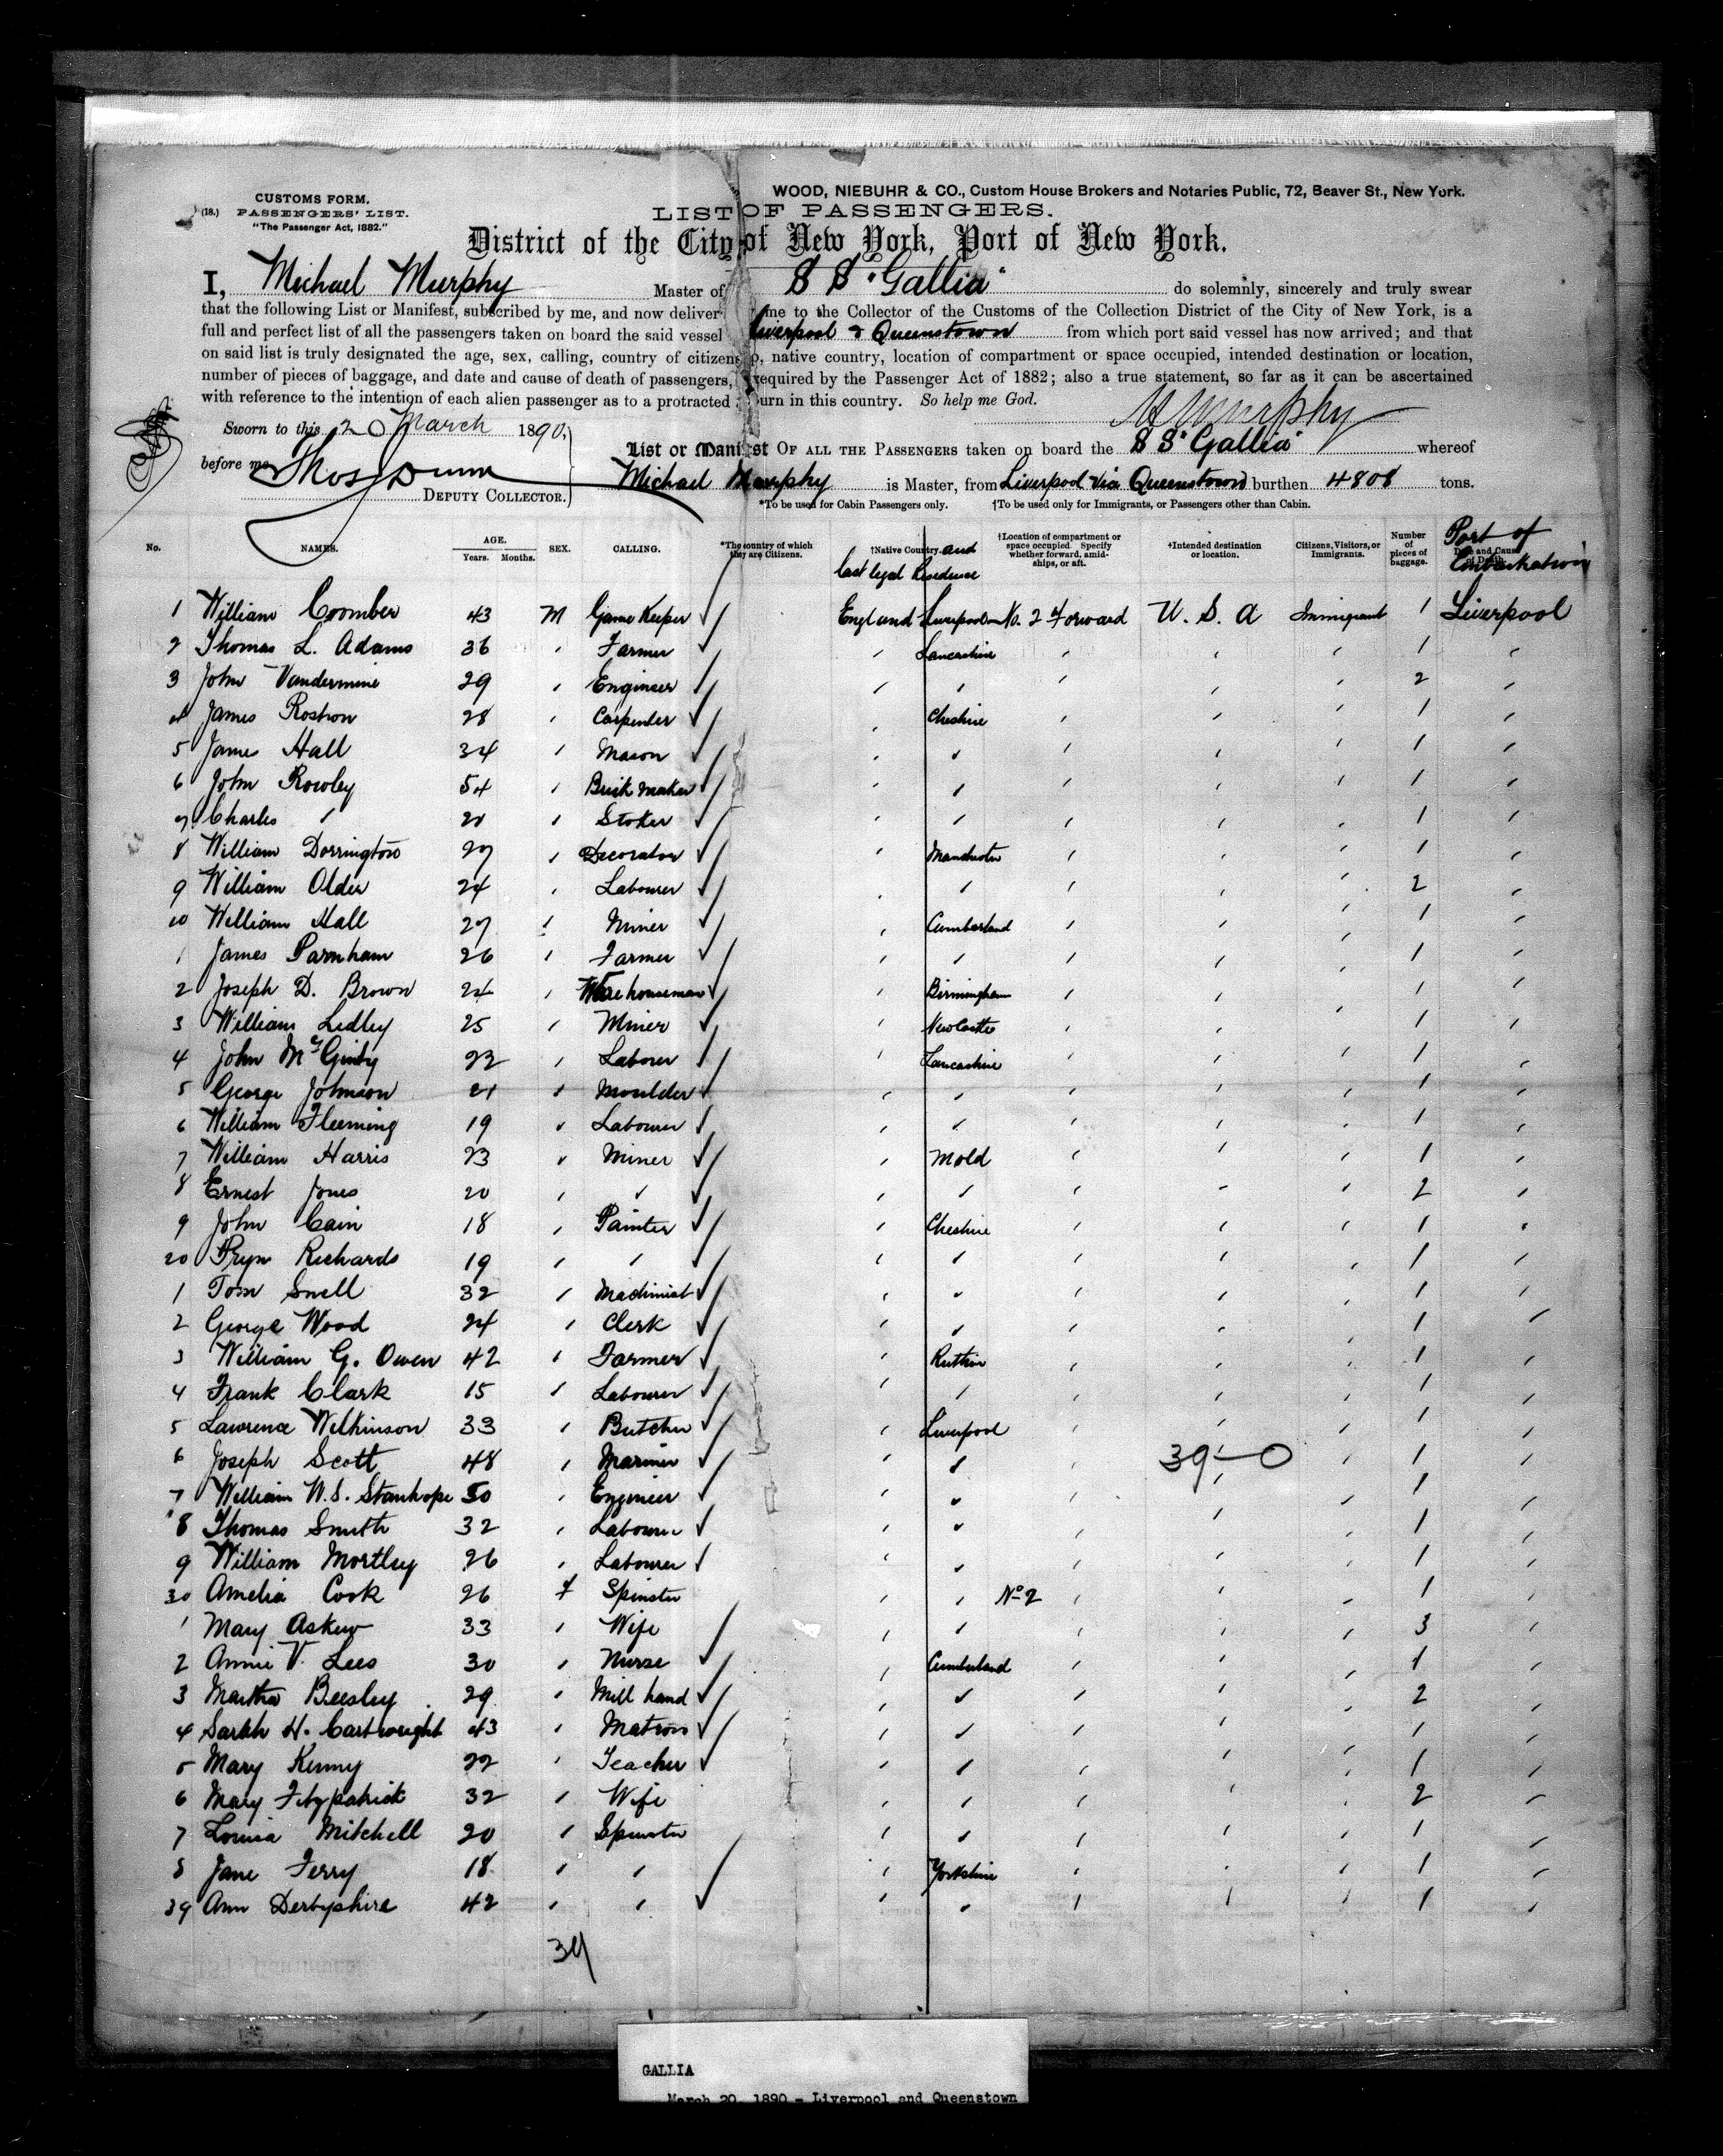 WOOD, NIEBUHR & CO., Custom House Brokers and Notaries Public, 72, Beaver St., New York.
CUSTOMS FORM.
(18.) PASSENGERS' LIST.
"The Passenger Act, 1882."
LIST OF PASSENGERS.
District of the City of New York, Port of New York.
I, Michael Murphy Master of S S "Gallia" do solemnly, sincerely and truly swear
that the following List or Manifest, subscribed by me, and now deliver me to the Collector of the Customs of the Collection District of the City of New York, is a
full and perfect list of all the passengers taken on board the said vessel Liverpool & Queenstown from which port said vessel has now arrived; and that
on said list is truly designated the age, sex, calling, country of citizens p, native country, location of compartment or space occupied, intended destination or location,
number of pieces of baggage, and date and cause of death of passengers, required by the Passenger Act of 1882; also a true statement, so far as it can be ascertained
with reference to the intention of each alien passenger as to a protracted urn in this country. So help me God.
M Murphy
Sworn to this 20 March 1890,
before me Thos Dunn
DEPUTY COLLECTOR.
List or Manifest OF ALL THE PASSENGERS taken on board the S S "Gallia" whereof
Michael Murphy is Master, from Liverpool via Queenstown burthen 4808 tons.
*To be used for Cabin Passengers only. †To be used only for Immigrants, or Passengers other than Cabin.
No. NAMES. AGE. Years. Months. SEX. CALLING. *The country of which they are Citizens. †Native Country. and last legal Residence †Location of compartment or space occupied. Specify whether forward, amidships, or aft. †Intended destination or location. Citizens, Visitors, or Immigrants. Number of pieces of baggage. Date and Cause of Death. Port of Embarkation
1 William Coomber 43 M Game Keeper ✓ England Liverpool No. 2 Forward U. S. A Immigrant 1 Liverpool
2 Thomas L. Adams 36 " Farmer ✓ " Lancashire " " " 1 "
3 John Vandermine 29 " Engineer ✓ " " " " " 2 "
4 James Rostron 28 " Carpenter ✓ " Cheshire " " " 1 "
5 James Hall 34 " Mason ✓ " " " " " 1 "
6 John Rowley 54 " Brick Maker ✓ " " " " " 1 "
7 Charles " 20 " Stoker ✓ " " " " " 1 "
8 William Dorrington 27 " Decorator ✓ " Manchester " " " 1 "
9 William Older 24 " Labourer ✓ " " " " " 2 "
10 William Hall 27 " Miner ✓ " Cumberland " " " 1 "
1 James Parnham 26 " Farmer ✓ " " " " " 1 "
2 Joseph D. Brown 24 " Warehouseman ✓ " Birmingham " " " 1 "
3 William Ledley 25 " Miner ✓ " NewCastle " " " 1 "
4 John McGinty 22 " Laborer ✓ " Lancashire " " " 1 "
5 George Johnson 21 " Moulder ✓ " " " " " 1 "
6 William Fleeming 19 " Labourer ✓ " " " " " 1 "
7 William Harris 23 " Miner ✓ " Mold " " " 1 "
8 Ernest Jones 20 " " ✓ " " " " " 2 "
9 John Cain 18 " Painter ✓ " Cheshire " " " 1 "
20 Richards 19 " " ✓ " " " " " 1 "
1 Tom Snell 32 " Machinist ✓ " " " " " 1 "
2 George Wood 24 " Clerk ✓ " " " " " 1 "
3 William G. Owen 42 " Farmer ✓ " Ruthin " " " 1 "
4 Frank Clark 15 " Labourer ✓ " " " " " 1 "
5 Lawrence Wilkinson 33 " Butcher ✓ " Liverpool " " " 1 "
6 Joseph Scott 48 " Mariner ✓ " " " " " 1 "
39-0
7 William W. S. Stanhope 50 " Engineer ✓ " " " " " 1 "
8 Thomas Smith 32 " Labourer ✓ " " " " " 1 "
9 William Mortley 26 " Labourer ✓ " " " " " 1 "
30 Amelia Cook 26 f Spinster " " No 2 " " " 1 "
1 Mary Askew 33 " Wife " " " " " 3 "
2 Annie V. Lees 30 " Nurse ✓ " Cumberland " " " 1 "
3 Martha Beesley 29 " Mill hand ✓ " " " " " 2 "
4 Sarah H. Cartwright 43 " Matron ✓ " " " " " 1 "
5 Mary Kenny 22 " Teacher ✓ " " " " " 1 "
6 Mary Fitzpatrick 32 " Wife " " " " " 2 "
7 Louisa Mitchell 20 " Spinster " " " " " 1 "
8 Jane Ferry 18 " " " Yorkshire " " " 1 "
39 Ann Derbyshire 42 " " ✓ " " " " " 1 "
39
GALLIA
March 20, 1890 - Liverpool and Queenstown